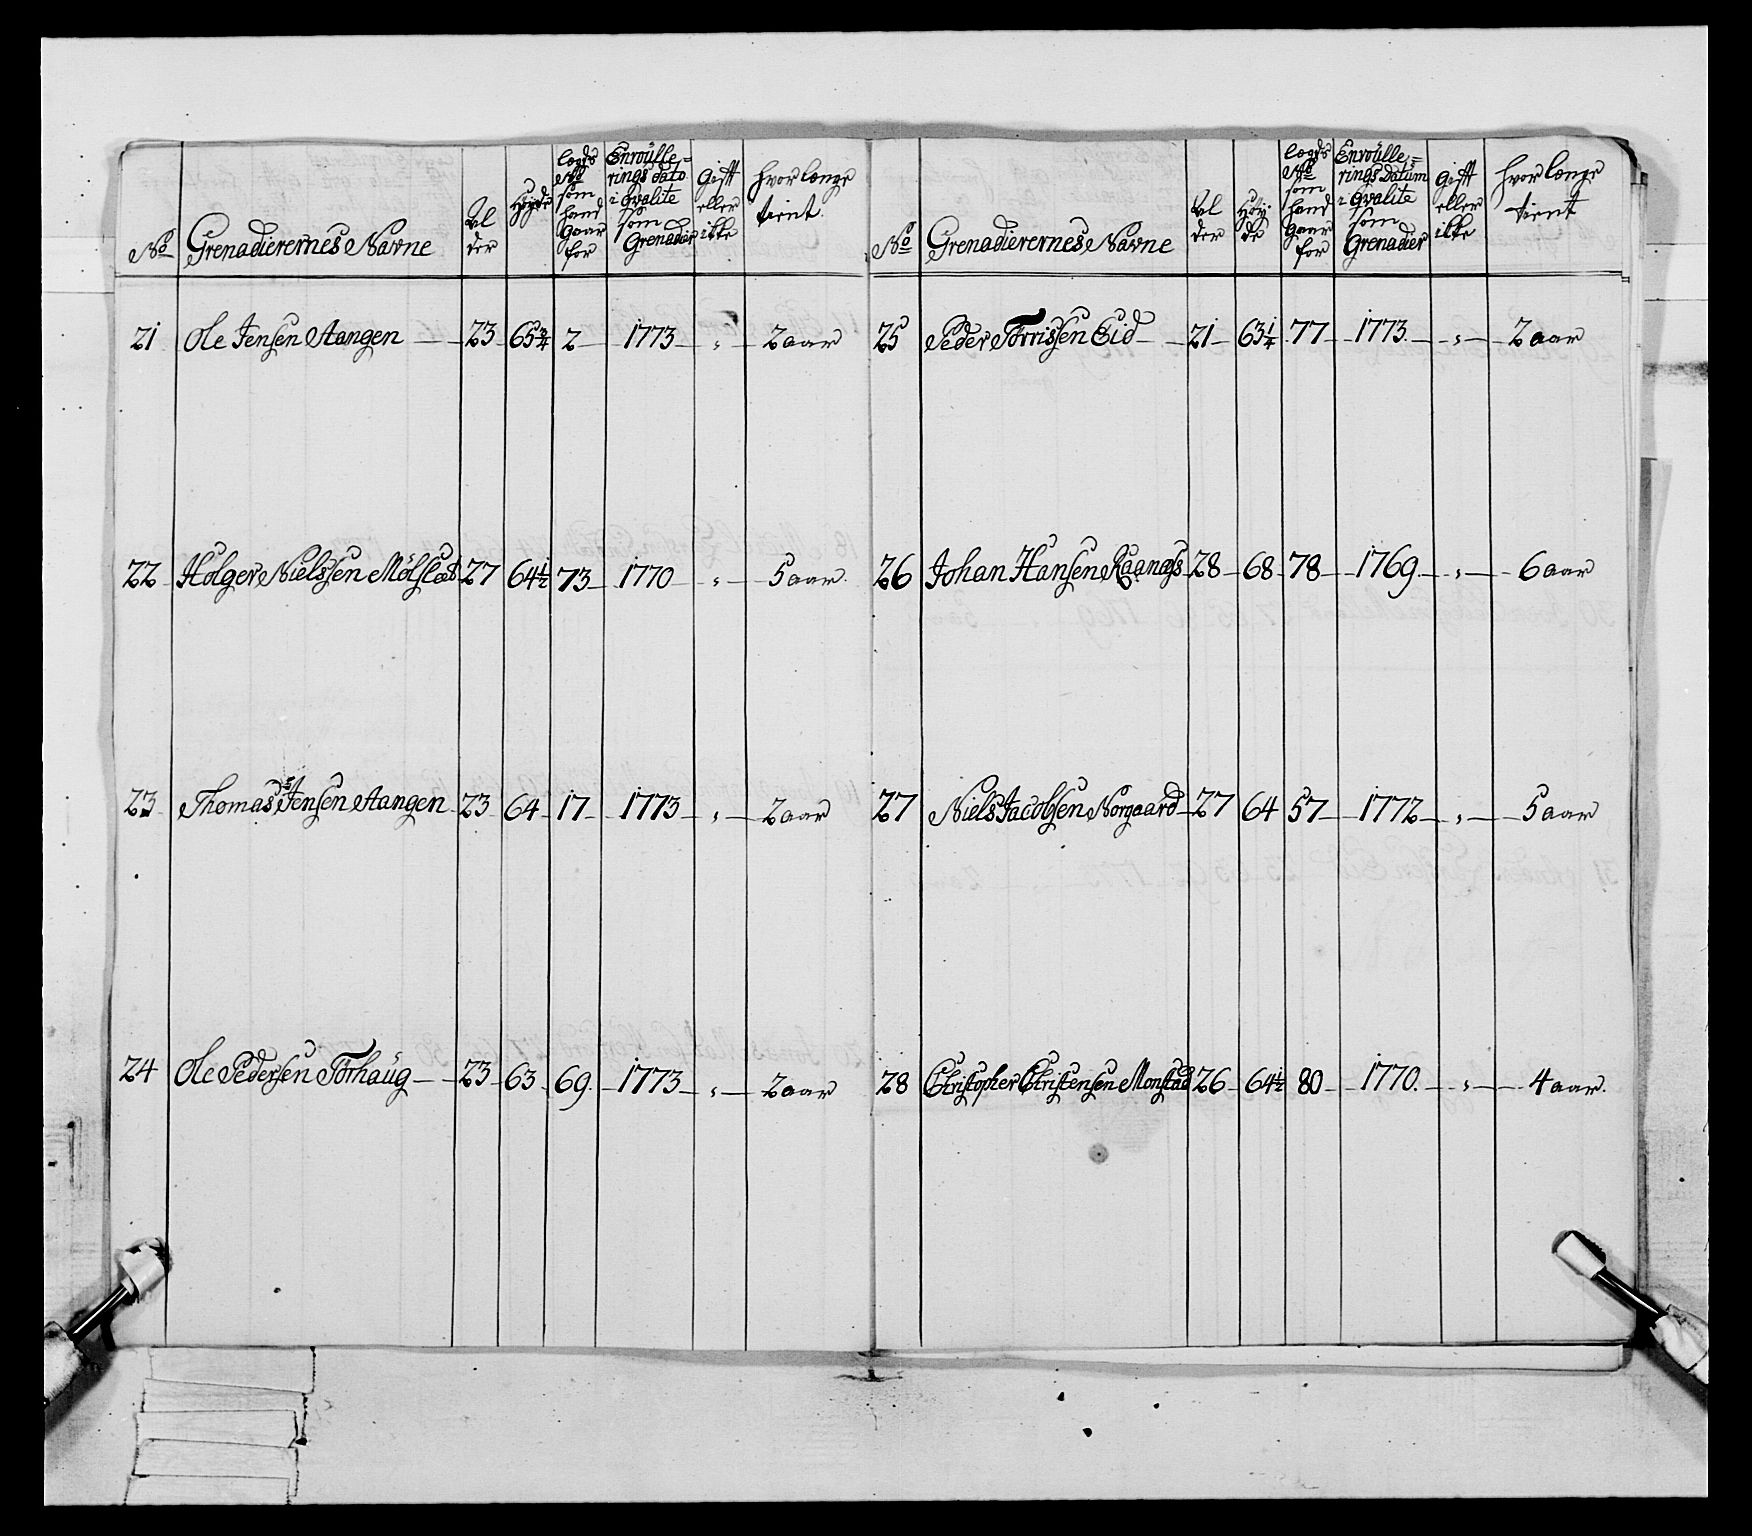 No Grenadierernes Navne Al der Høyde lægds No som hand gaar for Enroulle= rings dato i Qvalite som Grenadier Gift eller ikke hvor længe tient.
21 Ole Jensen Aangen 23 65 3/4 2 1773 " 2 aar
22 Holger Nielssen Mölstad 27 64 1/2 73 1770 " 5 aar.
23 Thomas Jensen Aangen 23 64 17 1773 " 2 aar
24 Ole Pedersen Torhaug 23 63 69. 1773 " 2 aar
No Grenadierernes Navne Al der Høy de lægds No som hand gaar for Enroulle= rings datum i Qvalite som Grenadier Gift eller ikke hvor længe tient
25 Peder Torrissen Eid 21 63 1/4 77 1773. " 2 aar
26 Johan Hansen 28 68 78 1769. " 6 aar
27 Niels Jacobsen Norgaard 27 64 57 1772 " 5 aar
28 Christopher Christensen Monstad 26 64 1/2 80 1770. " 4 aar.